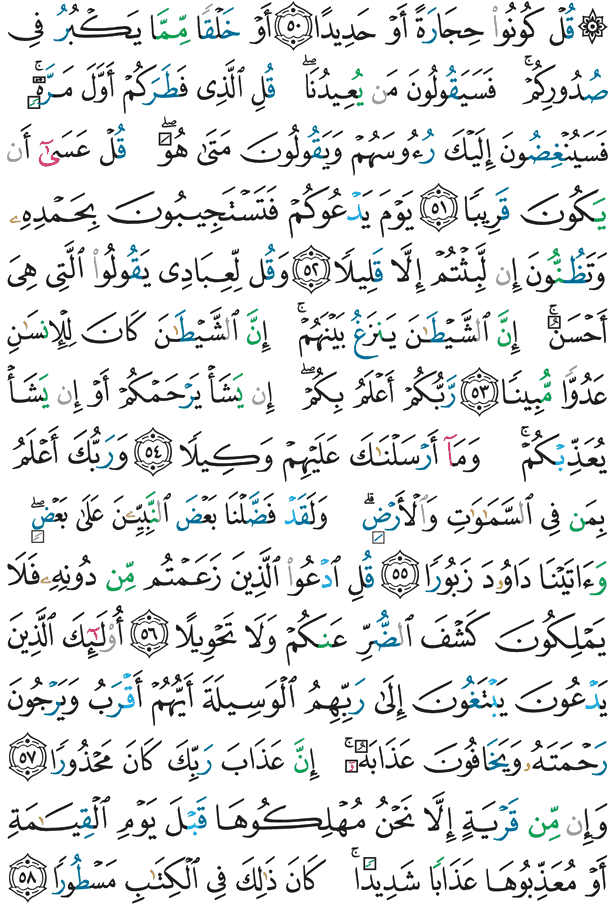 ۞ قُلْ كُونُوا۟ حِجَارَةً أَوْ حَدِيدًا ﴿٥٠﴾ أَوْ خَلْقًا مِّمَّا يَكْبُرُ فِى
صُدُورِكُمْ ۚ فَسَيَقُولُونَ مَن يُعِيدُنَا ۖ قُلِ ٱلَّذِى فَطَرَكُمْ أَوَّلَ مَرَّةٍ ۚ
فَسَيُنْغِضُونَ إِلَيْكَ رُءُوسَهُمْ وَيَقُولُونَ مَتَىٰ هُوَ ۖ قُلْ عَسَىٰٓ أَن
يَكُونَ قَرِيبًا ﴿٥١﴾ يَوْمَ يَدْعُوكُمْ فَتَسْتَجِيبُونَ بِحَمْدِهِۦ
وَتَظُنُّونَ إِن لَّبِثْتُمْ إِلَّا قَلِيلًا ﴿٥٢﴾ وَقُل لِّعِبَادِى يَقُولُوا۟ ٱلَّتِى هِىَ
أَحْسَنُ ۚ إِنَّ ٱلشَّيْطَـٰنَ يَنزَغُ بَيْنَهُمْ ۚ إِنَّ ٱلشَّيْطَـٰنَ كَانَ لِلْإِنسَـٰنِ
عَدُوًّا مُّبِينًا ﴿٥٣﴾ رَّبُّكُمْ أَعْلَمُ بِكُمْ ۖ إِن يَشَأْ يَرْحَمْكُمْ أَوْ إِن يَشَأْ
يُعَذِّبْكُمْ ۚ وَمَآ أَرْسَلْنَـٰكَ عَلَيْهِمْ وَكِيلًا ﴿٥٤﴾ وَرَبُّكَ أَعْلَمُ
بِمَن فِى ٱلسَّمَـٰوَٰتِ وَٱلْأَرْضِ ۗ وَلَقَدْ فَضَّلْنَا بَعْضَ ٱلنَّبِيِّـۧنَ عَلَىٰ بَعْضٍ ۖ
وَءَاتَيْنَا دَاوُۥدَ زَبُورًا ﴿٥٥﴾ قُلِ ٱدْعُوا۟ ٱلَّذِينَ زَعَمْتُم مِّن دُونِهِۦ فَلَا
يَمْلِكُونَ كَشْفَ ٱلضُّرِّ عَنكُمْ وَلَا تَحْوِيلًا ﴿٥٦﴾ أُو۟لَـٰٓئِكَ ٱلَّذِينَ
يَدْعُونَ يَبْتَغُونَ إِلَىٰ رَبِّهِمُ ٱلْوَسِيلَةَ أَيُّهُمْ أَقْرَبُ وَيَرْجُونَ
رَحْمَتَهُۥ وَيَخَافُونَ عَذَابَهُۥٓ ۚ إِنَّ عَذَابَ رَبِّكَ كَانَ مَحْذُورًا ﴿٥٧﴾
وَإِن مِّن قَرْيَةٍ إِلَّا نَحْنُ مُهْلِكُوهَا قَبْلَ يَوْمِ ٱلْقِيَـٰمَةِ
أَوْ مُعَذِّبُوهَا عَذَابًا شَدِيدًا ۚ كَانَ ذَٰلِكَ فِى ٱلْكِتَـٰبِ مَسْطُورًا ﴿٥٨﴾